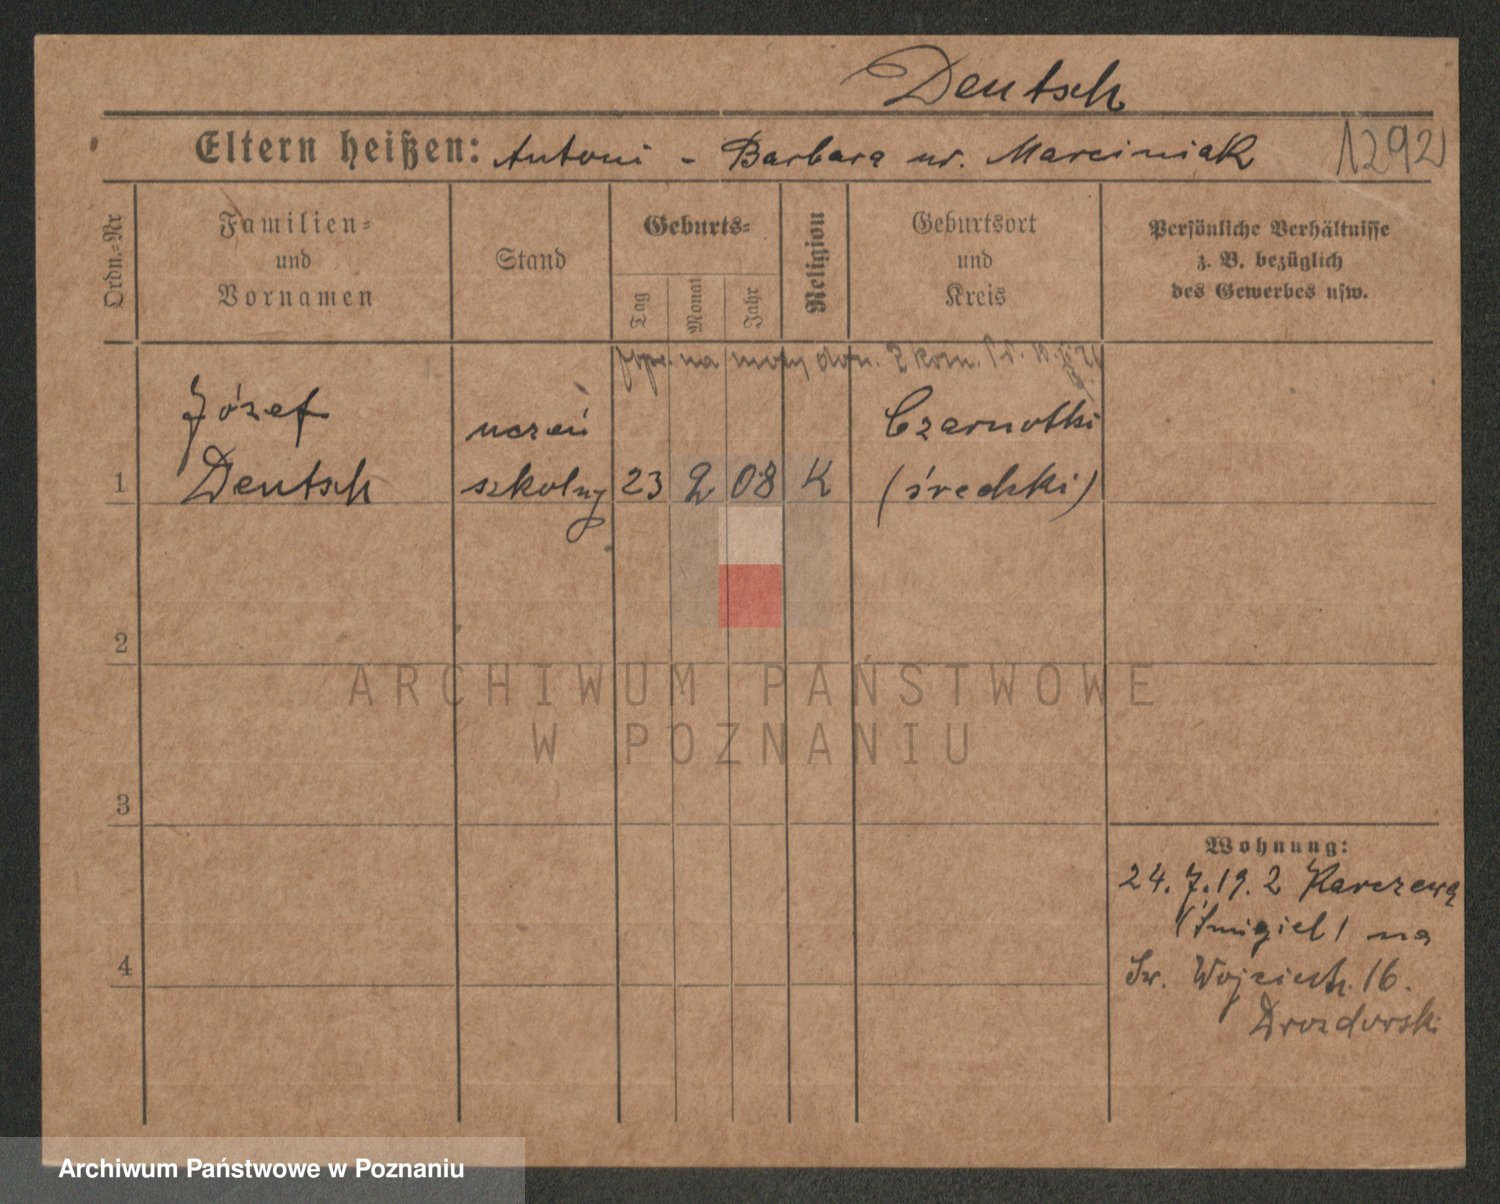 Deutsch
Eltern heißen: Antoni - Barbara ur. Marciniak
1292
Ordn.-Nr
Familien-
und
Vornamen
Stand
Geburts-
Tag
Monat
Jahr
Religion
Geburtsort
und
Kreis
Persönliche Verhältnisse
z. B. bezüglich
des Gewerbes usw.
na mocy dow. 2 kom.
1
Józef
Deutsch
uczeń
szkolny
23
2
08
K
Czarnotki
(średzki)
2
3
4
ARCHIWUM PAŃSTWOWE
W POZNANIU
Wohnung:
24.7.19. z Karczewa
(Śmigiel) na
Św. Wojciech. 16.
Drozdowski
Archiwum Państwowe w Poznaniu